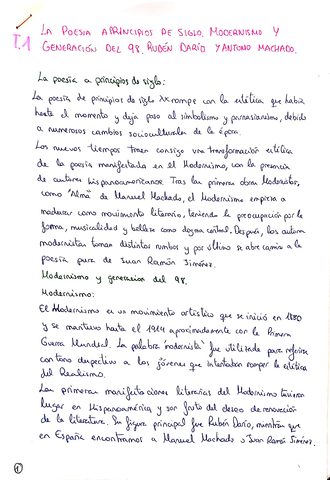 T.1
LA POESIA A PRINCIPIOS DE SIGLO. MODERNISMO Y
GENERACIÓN DEL 98. RUBÉN DARÍO Y ANTONIO MACHADO.
La poesía a principios de siglo:
La poesía de principios de siglo XX rompe con la estética que había
hasta el momento y deja paso al simbolismo y parnasianismo, debido
a numerosos cambios socioculturales de la época.
Los nuevos tiempos traen consigo una transformación estética
de la poesía manifestada en el Modernismo, con la presencia
de autores hispanoamericanos. Tras las primeras obras Modernistas,
como "Alma" de Manuel Machado, el Modernismo empieza a
madurar como movimiento literario, teniendo la preocupación por la
forma, musicalidad y belleza como dogma central. Después, los autores
modernistas toman distintos rumbos y por último se abre camino a la
poesía pura de Juan Ramón Jiménez.
Modernismo y generación del 98.
Modernismo:
El Modernismo es un movimiento artístico que se inició en 1880
y se mantuvo hasta el 1914 aproximadamente con la Primera
Guerra Mundial. La palabra "modernista" fue utilizada para referirse
con tono despectivo a los jóvenes que intentaban romper la estética
del Realismo.
Las primeras manifestaciones literarias del Modernismo tuvieron
lugar en Hispanoamérica y son fruto del deseo de renovación
de la literatura. Su figura principal fue Rubén Darío, mientras que
en España encontramos a Manuel Machado y Juan Ramón Jiménez.
1